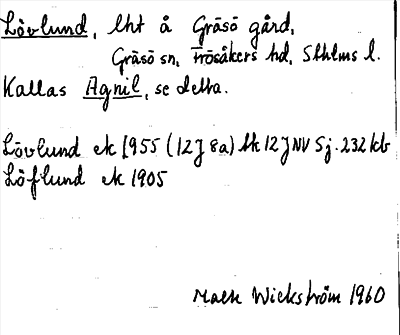 Lövlund, lht å Gräsö gård,
Gräsö sn, Frösåkers hd, Sthlms l.
Kallas Agnil, se detta.
Lövlund ek 1955 (12J 8a) bk 12J NV Sj. 232 kb
Löflund ek 1905
Mats Wickström 1960